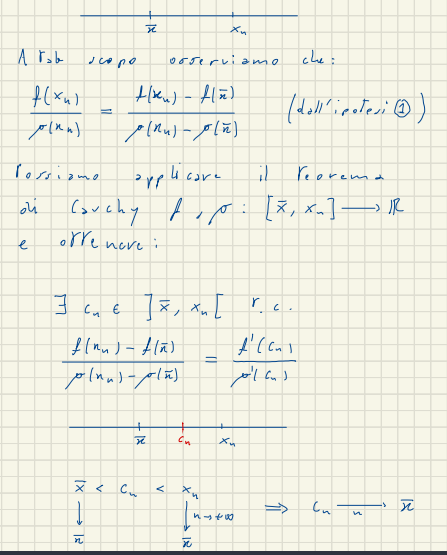 x̄ xₙ
A tale scopo osserviamo che:
f(xₙ)/g(xₙ) = (f(xₙ) - f(x̄))/(g(xₙ) - g(x̄)) (dall'ipotesi ①)
Possiamo applicare il teorema
di Cauchy f, g: [x̄, xₙ] → ℝ
e ottenere:
∃ cₙ ∈ ]x̄, xₙ[ t.c.
(f(xₙ) - f(x̄))/(g(xₙ) - g(x̄)) = f'(cₙ)/g'(cₙ)
x̄ cₙ xₙ
x̄ < cₙ < xₙ
↓ ↓ n→+∞ ⟹ cₙ →ₙ x̄
x̄ x̄